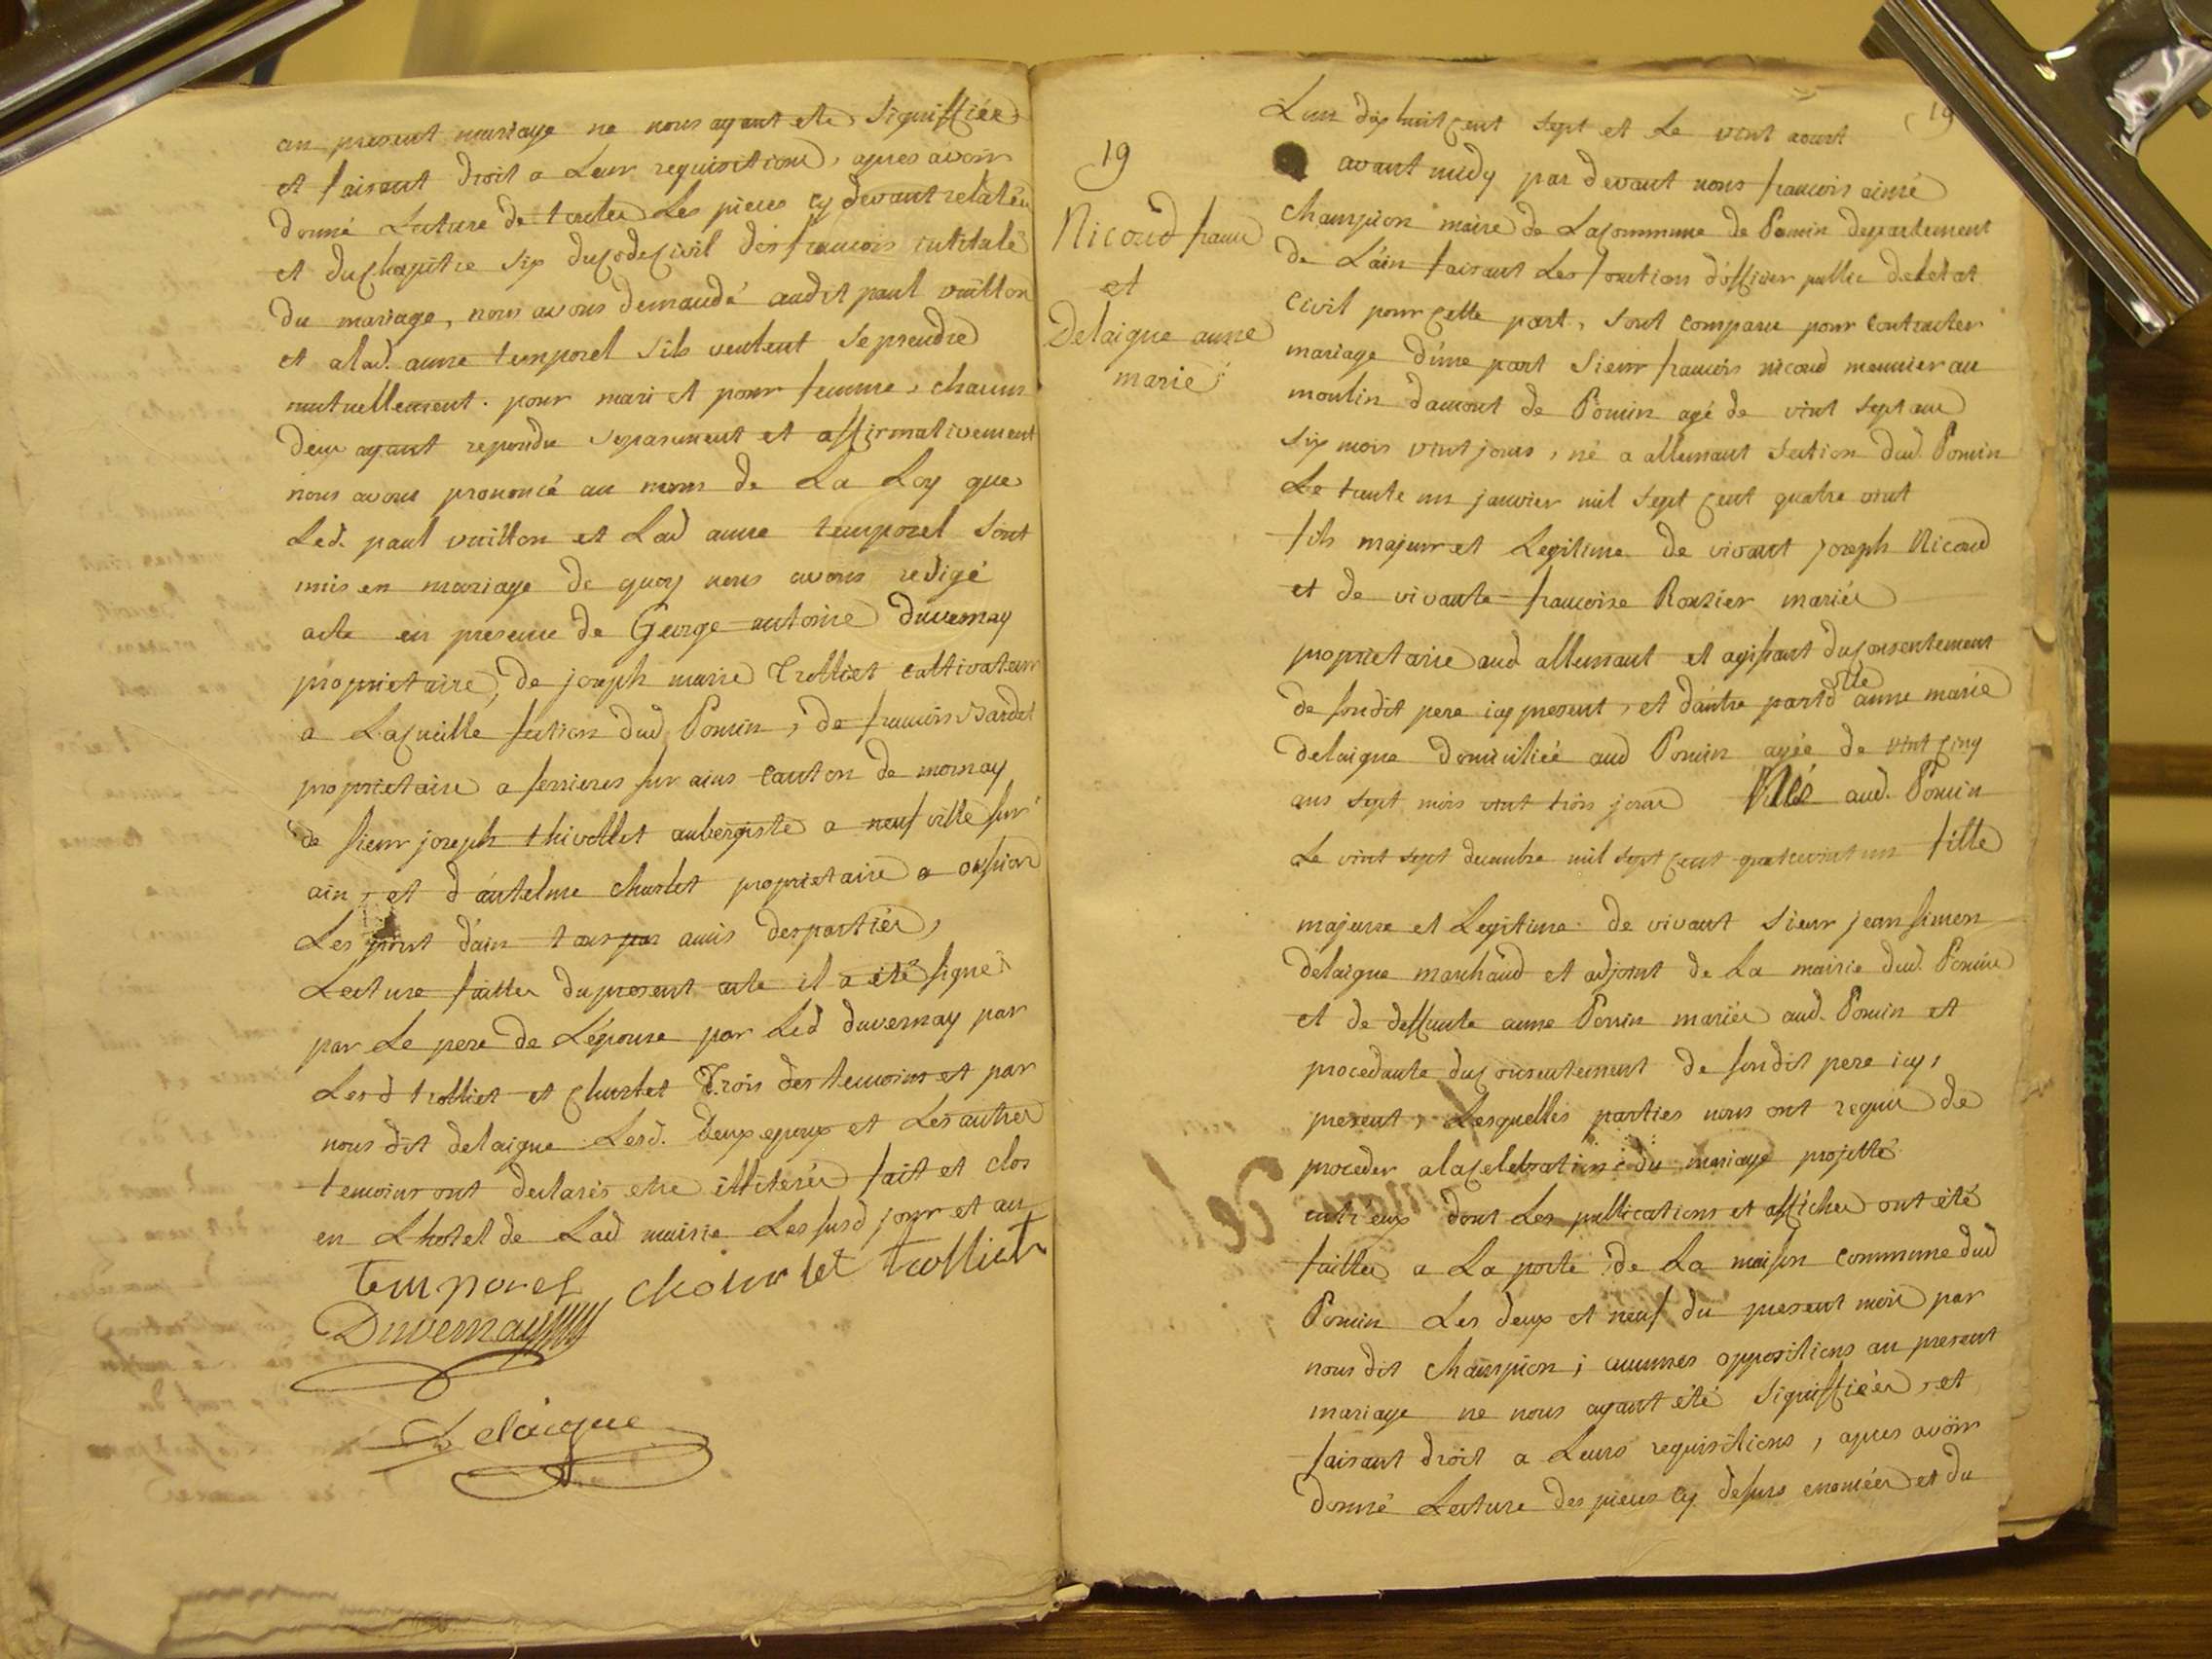 au present mariage ne nous ayant eté signiffiée
et faisant droit a Leur requisitions, apres avoir
donné Lecture de toutes Les pieces cy devant relatées
et du chapitre six du code civil des francois intitulé
du mariage, nous avons demandé audit paul vuitton
et a lad. anne temporel sils veulent se prendre
mutuellement pour mari et pour femme, chacun
deux ayant repondu separement et affirmativement
nous avons prononcé au nom de La Loy que
Led. paul vuitton et Lad anne temporel sont
unis en mariage de quoy nous avons redigé
acte en presence de George antoine duvernay
proprietaire, de joseph marie Trolliet cultivateur
a La cueille section dud Poncin, de francois
proprietaire a serrieres sur ains canton de mornay
de sieur joseph thivollet aubergiste a neufville sur
ain, et d'antelme charlet proprietaire a
Les d'ain tous amis des parties,
Lecture faitte du present acte il a été signé
par Le pere de L'épouse par Led duvernay par
Lesd trolliet et charlet Trois des temoins et par
nous dit delaigue Lesd. deux epoux et Les autres
temoins ont declarés etre illiterés fait et clos
en L'hotel de Lad mairie Les susd jour et an
temporel chourlet trolliet
Duvernay
Delaigue
19
Nicoud franc
et
Delaigue anne
marie
19
L'an dix huit cent sept et Le vint aoust
avant midy par devant nous francois aimé
champion maire de La commune de Poncin departement
de L'ain faisant Les fonctions d'officier public de letat
civil pour cette part, sont comparu pour contracter
mariage d'une part sieur francois nicoud meunier au
moulin damont de Poncin agé de vint sept ans
six mois vint jours, né a allemant section dud Poncin
Le trente un janvier mil sept cent quatre vint
fils majeur et Legitime de vivant joseph Nicoud
et de vivante francoise Rouzier mariés
proprietaire aud allemant et agissant du consentement
de sondit pere icy present, et d'autre part dlle anne marie
delaigue domiciliée aud Poncin agée de vint cinq
ans sept mois vint trois jours Nés aud. Poncin
Le vint sept decembre mil sept cent quatrevint un fille
majeure et Legitime de vivant sieur jean simon
delaigue marchand et adjoint de La mairie dud. Poncin
et de deffunte anne Perrin mariés aud. Poncin et
procedante du consentement de sondit pere icy,
present, Lesquelles parties nous ont requis de
proceder a la celebration du mariage projetté
entr'eux dont Les publications et affiches ont été
faittes a La porte de La maison commune dud
Poncin Les deux et neuf du present mois par
nous dit champion; aucunes oppositions au present
mariage ne nous ayant été signiffiées, et
faisant droit a Leurs requisitions, apres avoir
donné Lecture des pieces cy dessus enoncées et du